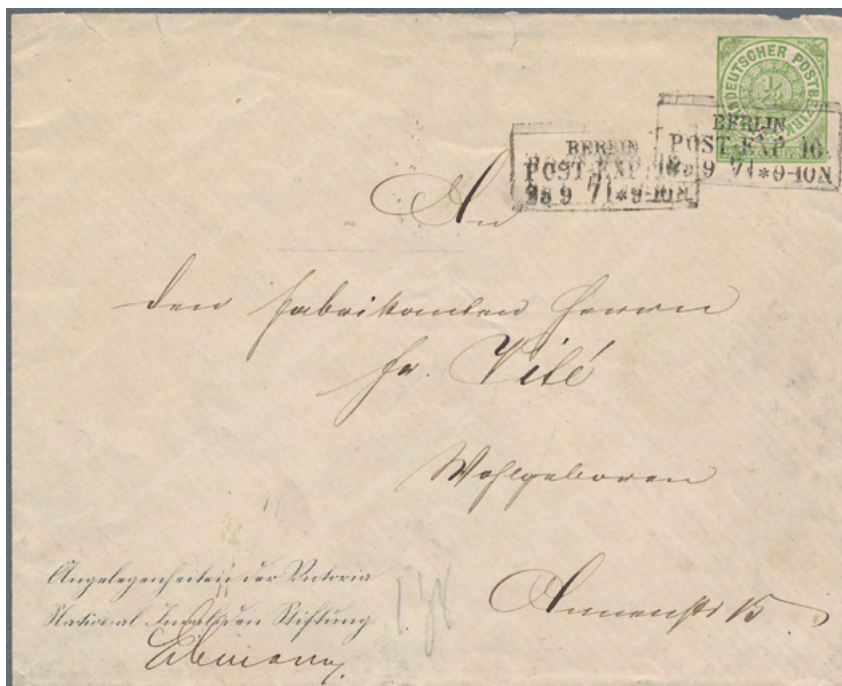 NORDDEUTSCHER POSTBEZIRK
BERLIN
POST-EXP. 16.
9 71*9-10N
BERLIN
POST-EXP. 16.
28 9 71*9-10N
An
den Fabrikanten Herrn
Fr. Vité
Wohlgeboren
Annenstr 15
Angelegenheiten der Victoria
National Invaliden Stiftung.
138